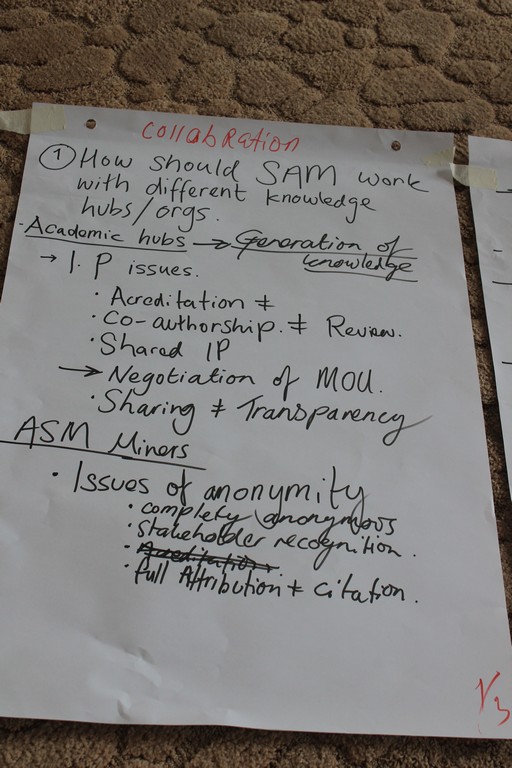 collabRation
① How should SAM work
with different knowledge
hubs/orgs.
· Academic hubs → Generation of
knowledge
→ I.P issues.
· Acreditation ‡
· Co-authorship. ‡ Review.
· Shared IP
→ Negotiation of MOU.
· Sharing ‡ Transparency
ASM Miners
· Issues of anonymity
· completly anonymous
· Stakeholder recognition.
· Acreditation.
· full Attribution ‡ Citation.